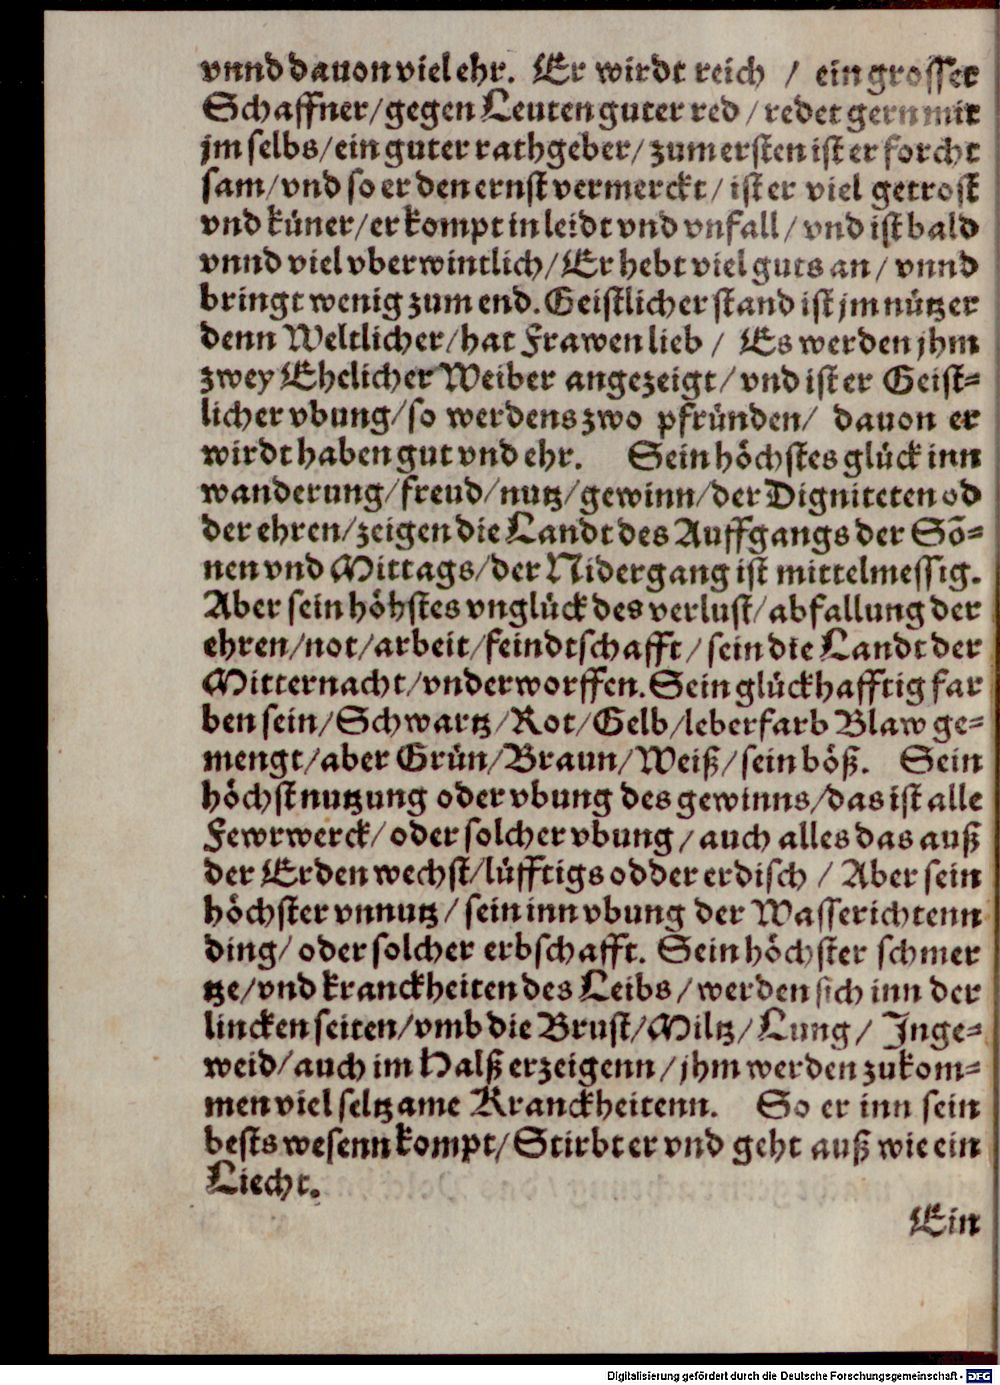 vnnd dauon viel ehr. Er wirdt reich / ein grosser
Schaffner/gegen Leuten guter red / redet gern mit
jm selbs/ein guter rathgeber/ zum ersten ist er forcht
sam/vnd so er den ernst vermerckt/ ist er viel getrost
vnd küner/er kompt in leidt vnd vnfall/ vnd ist bald
vnnd viel vberwintlich/Er hebt viel guts an/ vnnd
bringt wenig zum end. Geistlicher stand ist jm nützer
denn Weltlicher/hat Frawen lieb / Es werden jhm
zwey Ehelicher Weiber angezeigt/ vnd ist er Geist-
licher vbung/so werdens zwo pfründen/ dauon er
wirdt haben gut vnd ehr. Sein höchstes glück inn
wanderung/freud/nutz/gewinn/der Digniteten od
der ehren/zeigen die Landt des Auffgangs der Sõ-
nen vnd Mittags/der Nidergang ist mittelmessig.
Aber sein höhstes vnglück des verlust/abfallung der
ehren/not/arbeit/feindtschafft/sein die Landt der
Mitternacht/vnderworffen. Sein glückhafftig far
ben sein/Schwartz/Rot/Gelb/leberfarb Blaw ge-
mengt/aber Grün/Braun/Weiß/sein böß. Sein
höchst nutzung oder vbung des gewinns/das ist alle
Fewrwerck/ oder solcher vbung/auch alles das auß
der Erden wechst/lüfftigs odder erdisch / Aber sein
höchster vnnutz/ sein inn vbung der Wasserichtenn
ding/ oder solcher erbschafft. Sein höchster schmer
tze/vnd kranckheiten des Leibs/werden sich inn der
lincken seiten/vmb die Brust/Miltz/Lung/ Inge-
weid/auch im Halß erzeigenn/jhm werden zukom-
men viel seltzame Kranckheitenn. So er inn sein
bests wesenn kompt/Stirbt er vnd geht auß wie ein
Liecht.
Ein
Digitalisierung gefördert durch die Deutsche Forschungsgemeinschaft - DFG